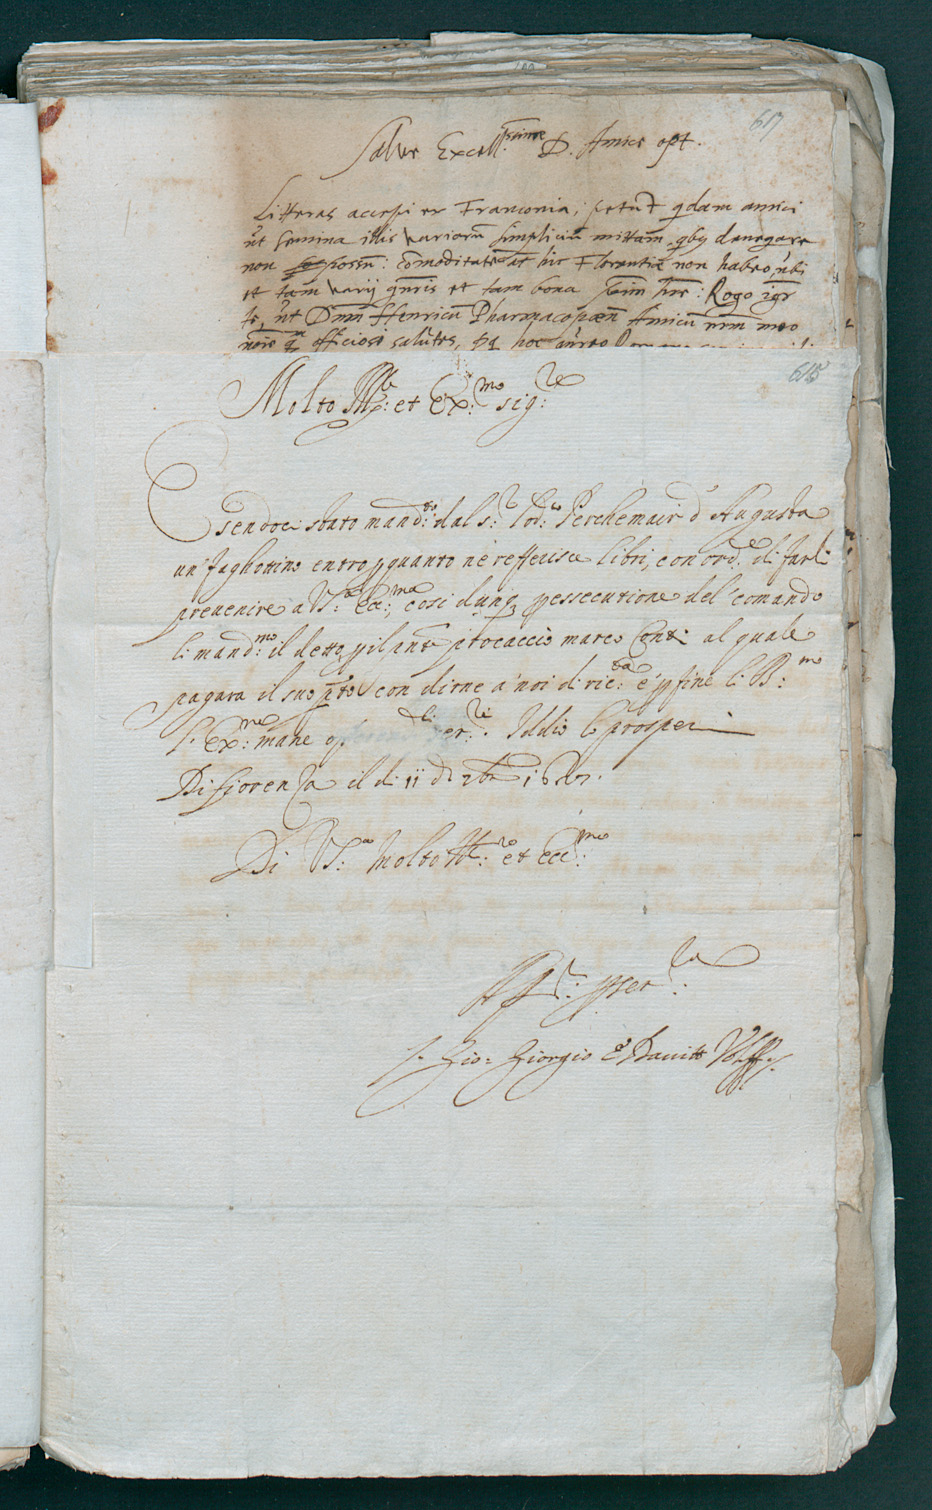 617
Salve Excell.ssime D. Amice opt.
Litteras accepi ex Franconia, petunt qdam amici
ut semina illis variorũ simpliciũ mittam, qbq denegare
non possũ: cõmoditatẽ at hic Florentiæ non habeo, ubi
et tam varij gñris et tam bona Rogo igr
te, ut Dnm Henricũ Pharmacopæũ Amicũ nrm meo
noie officiose salutes,
615
Molto Ill.e: et Ex:mo sig:re
Esendoci stato mand:to dal s:r Perchemair d'Augusta
un faghottino entro p quanto ne refferisce libri, con ord.e di farli
prevenire a V.S: ecc:ma, cosi dunq p essecutione del comando
li mand:mo il detto p il procaccio marco Conti al quale
pagara il suo con dirne a noi di ric:ta e p fine li B:mo
l' Ex:me mane ser.re. Iddio la prosperi
Di fiorenza il di 11 di 1607.
Di V.S: Molto Ill:re et ecc:mo
Aff:
Gio: Giorgio e Davitt Volff